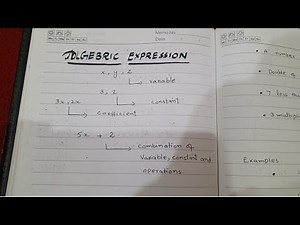 ALGEBRIC EXPRESSION
x, y, z
variable
3, 2
constant
3x, 2x
coefficient
5x + 2
combination of
variable, constant and
operations
A number
Double of
7 less th
Examples: